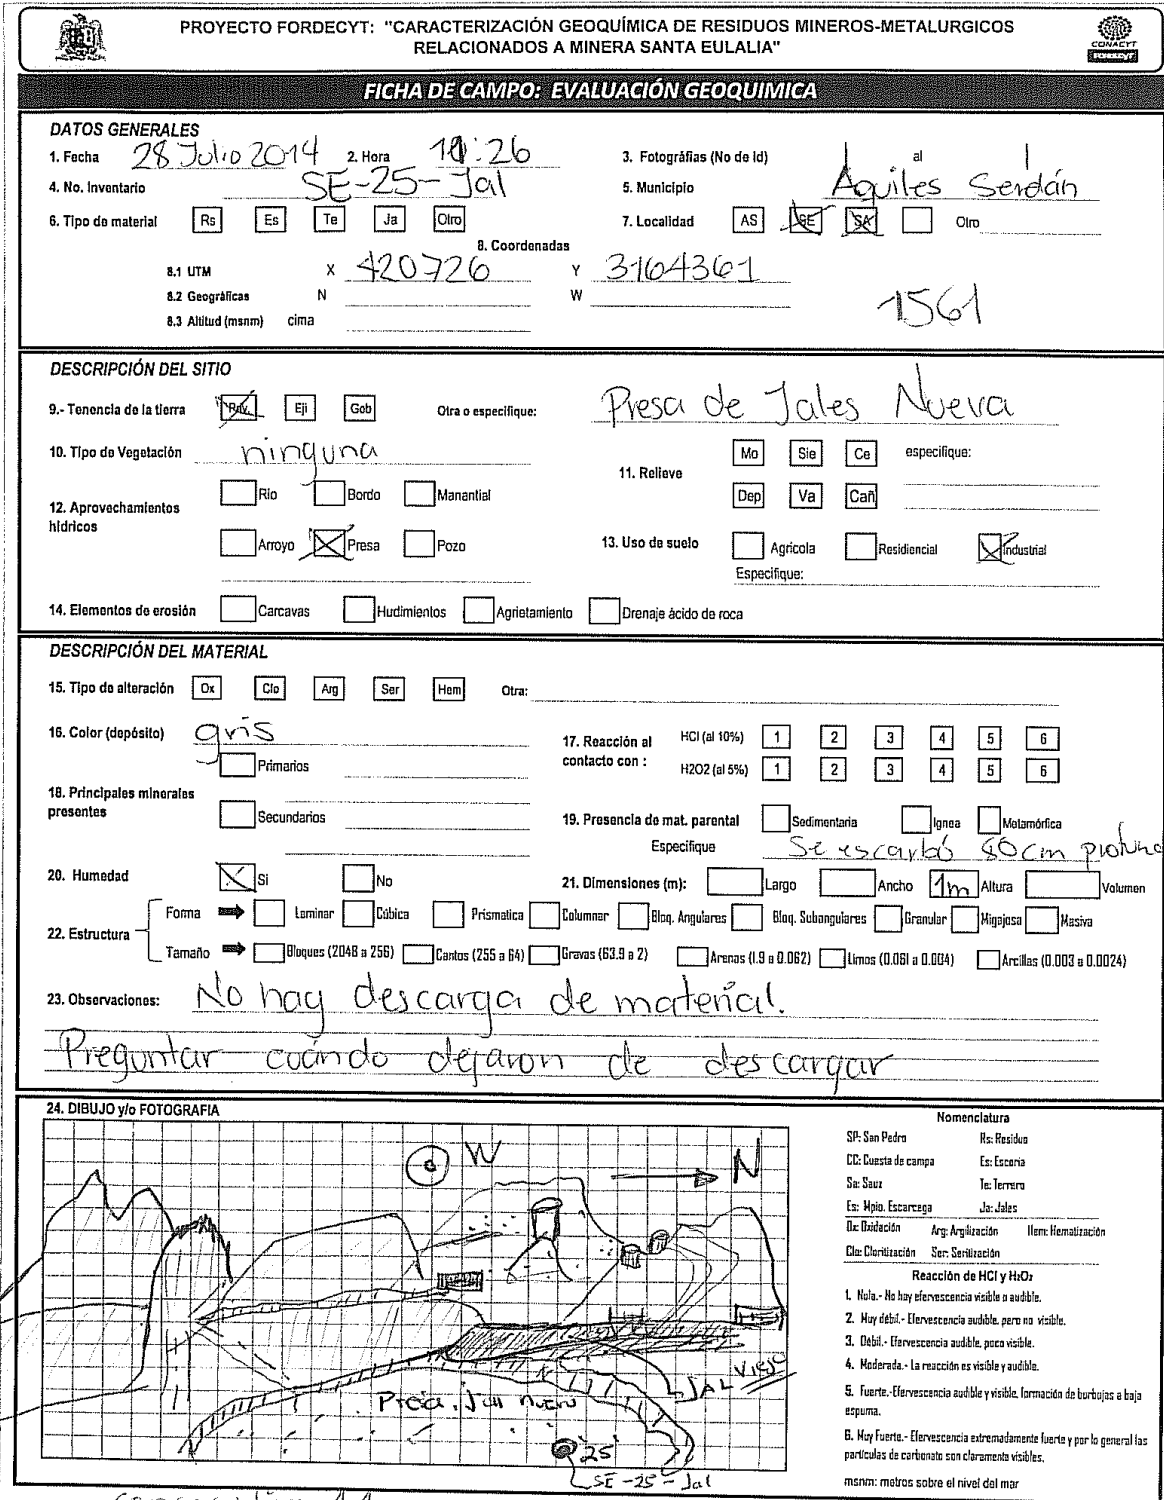 PROYECTO FORDECYT: "CARACTERIZACIÓN GEOQUÍMICA DE RESIDUOS MINEROS-METALURGICOS
RELACIONADOS A MINERA SANTA EULALIA"
CONACYT
FORDECYT
FICHA DE CAMPO: EVALUACIÓN GEOQUIMICA
DATOS GENERALES
1. Fecha 28 Julio 2014 2. Hora 11:26 3. Fotográfias (No de Id) 1 al 1
4. No. Inventario SE-25-Jal 5. Municipio Aquiles Serdán
6. Tipo de material Rs Es Te Ja Otro 7. Localidad AS SE SA Otro
8. Coordenadas
8.1 UTM X 420726 Y 3164361
8.2 Geográficas N W 1561
8.3 Altitud (msnm) cima
DESCRIPCIÓN DEL SITIO
9.- Tenencia de la tierra Priv. Eji Gob Otra o especifique: Presa de Jales Nueva
10. Tipo de Vegetación ninguna
11. Relieve Mo Sie Ce especifique:
Dep Va Cañ
12. Aprovechamientos hídricos Rio Bordo Manantial
Arroyo Presa Pozo
13. Uso de suelo Agricola Residiencial Industrial
Especifique:
14. Elementos de erosión Carcavas Hudimientos Agrietamiento Drenaje ácido de roca
DESCRIPCIÓN DEL MATERIAL
15. Tipo de alteración Ox Clo Arg Ser Hem Otra:
16. Color (depósito) gris
17. Reacción al contacto con : HCl (al 10%) 1 2 3 4 5 6
H2O2 (al 5%) 1 2 3 4 5 6
18. Principales minerales presentes Primarios
Secundarios
19. Presencia de mat. parental Sedimentaria Ignea Metamórfica
Especifique Se escarbó 80cm profund
20. Humedad Si No
21. Dimensiones (m): Largo Ancho 1m Altura Volumen
22. Estructura Forma Laminar Cúbica Prismatica Columnar Bloq. Angulares Bloq. Subangulares Granular Migajosa Masiva
Tamaño Bloques (2048 a 256) Cantos (255 a 64) Gravas (63.9 a 2) Arenas (1.9 a 0.062) Limos (0.061 a 0.004) Arcillas (0.003 a 0.0024)
23. Observaciones: No hay descarga de material.
Preguntar cuándo dejaron de descargar
24. DIBUJO y/o FOTOGRAFIA
W
N
JAL Viejo
Presa Jal nuevo
25
SE-25-Jal
Nomenclatura
SP: San Pedro Rs: Residuo
CC: Cuesta de campa Es: Escoria
Sa: Sauz Te: Terrero
Es: Mpio. Escarcega Ja: Jales
Ox: Oxidación Arg: Argilización Hem: Hematización
Clo: Cloritización Ser: Seritización
Reacción de HCl y H₂O₂
1. Nula.- No hay efervescencia visible o audible.
2. Muy débil.- Efervescencia audible, pero no visible.
3. Débil.- Efervescencia audible, poco visible.
4. Moderada.- La reacción es visible y audible.
5. Fuerte.-Efervescencia audible y visible, formación de burbujas a baja
espuma.
6. Muy Fuerte.- Efervescencia extremadamente fuerte y por lo general las
partículas de carbonato son claramente visibles.
msnm: metros sobre el nivel del mar